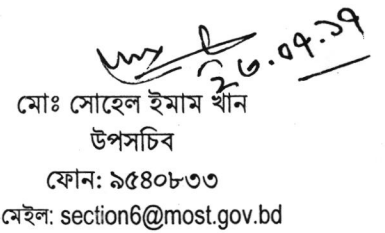 ২৩.০৭.১৭
মোঃ সোহেল ইমাম খান
উপসচিব
ফোন: ৯৫৪০৮৩৩
মেইল: section6@most.gov.bd